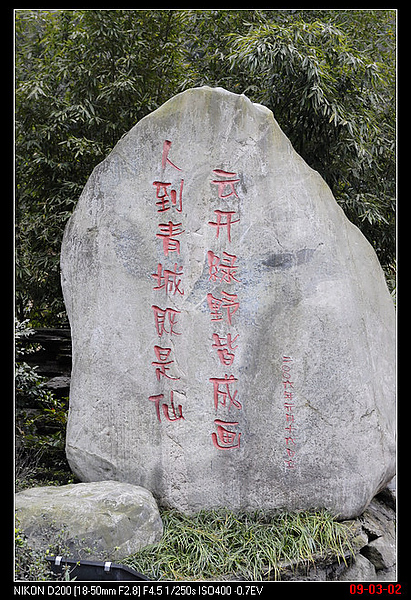 人到青城既是仙
云开绿野皆成画
二〇〇六年
NIKON D200 [18-50mm F2.8] F4.5 1/250s ISO400 -0.7EV
09-03-02